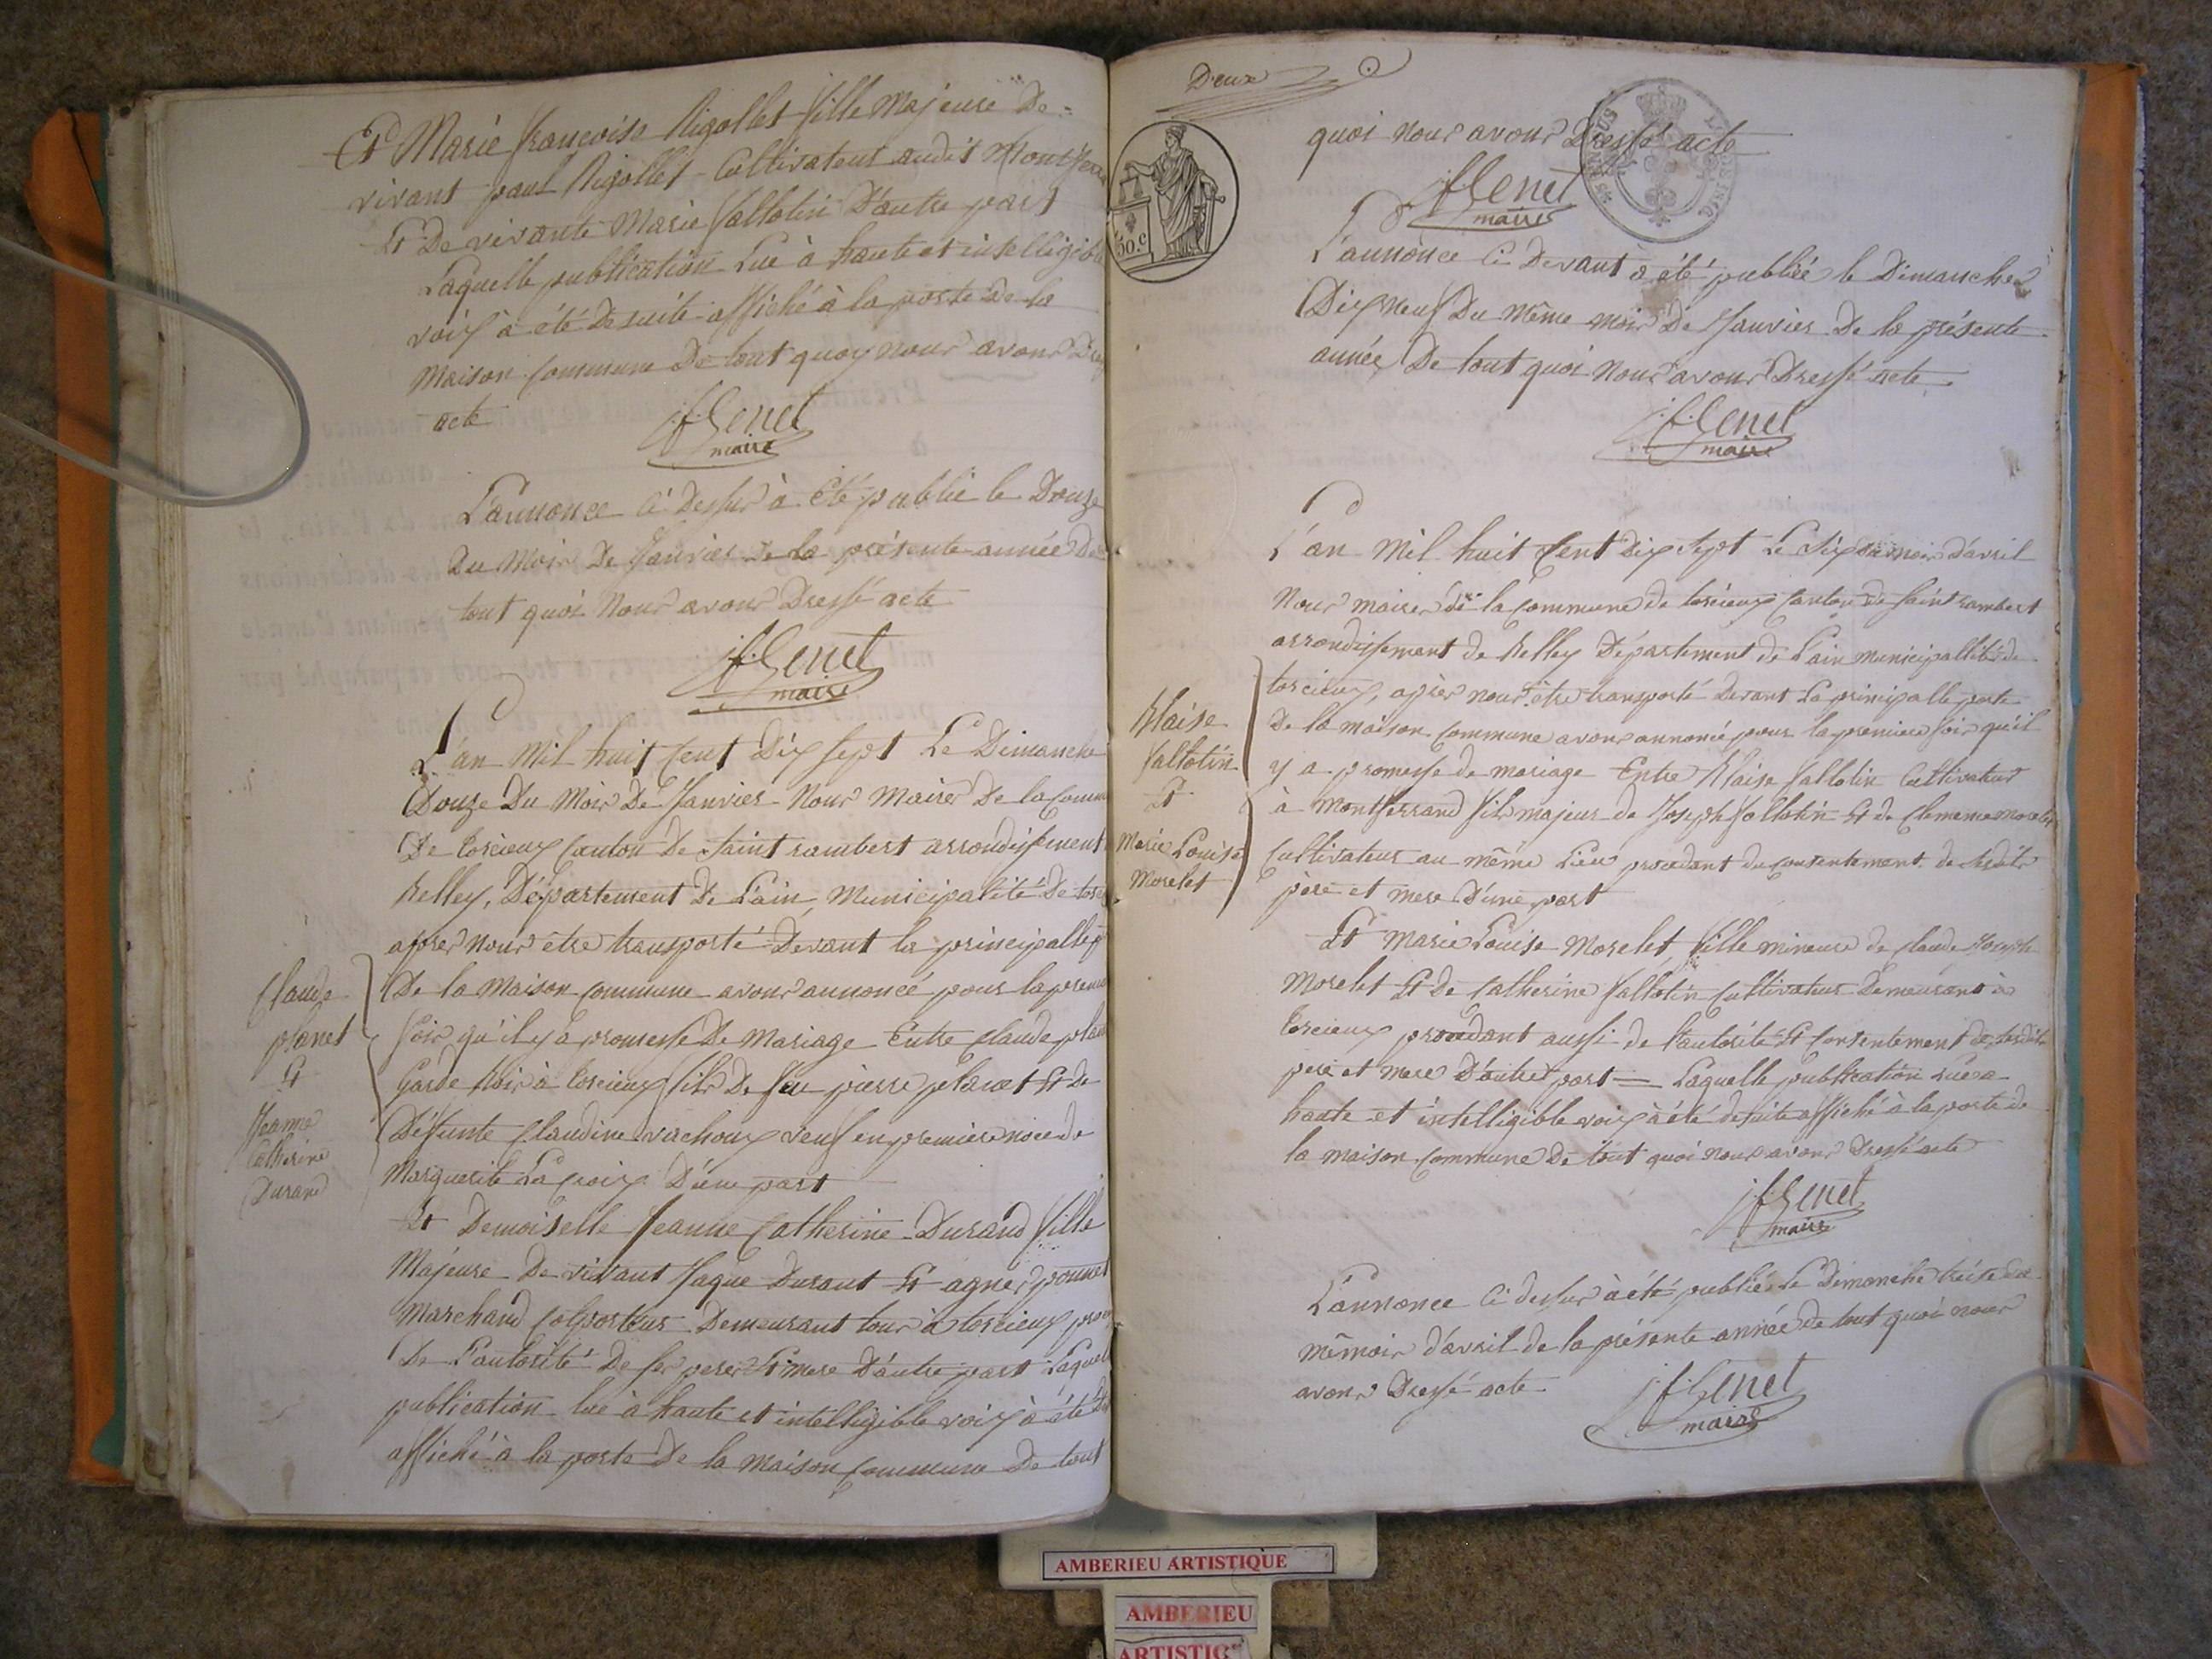 Et Marie françoise Rigollet fille Majeure De
vivant paul Rigollet Cultivateur audit Montferr
Et De vivante Marie Sallotin D'autre part
Laquelle publication Lue à haute et intelligible
voix à été De suite affiché à la porte De la
maison Commune De tout quoy nous avons Dressé
acte
j.f. Genet
maire
L'annonce Ci Dessus à Été publié le Douze
Du Mois De Janvier De La présente année De
tout quoi Nous avons Dressé acte
j.f. Genet
maire
L'an Mil huit Cent Dix sept Le Dimanche
Douze Du Mois De Janvier Nous Maire De la Comm
De torcieux Canton De Saint rambert arrondissement
Belley, Département De L'ain, Municipalité De torc
après nous être transporté Devant la principalle p
De la Maison Commune avons annoncé pour la premie
fois qu'il y a promesse De Mariage Entre Claude plan
Garde Bois à torcieux fils De feu pierre planet Et De
Défunte Claudine vachoux veuf en premiere noce de
Marguerite La Croix D'une part
Claude
planet
Et
Jeanne
Catherine
Durand
Et Demoiselle Jeanne Catherine Durand fille
Majeure De vivant Jaque Durant Et agnes ponnet
Marchand Colporteur Demeurant tous à torcieux proc
De L'autorité De ses peres Et mere D'autre part Laquel
publication lue à haute et intelligible voix à été De
affiché à la porte De la Maison Commune De tout
Deux
50.c
quoi nous avons Dressé acte
j.f. Genet
maire
L'annonce Ci Devant à été publiée le Dimanche
Dix Neuf Du même mois De Janvier De la présente
année De tout quoi Nous avons Dressé acte
j.f. Genet
maire
L'an Mil huit Cent Dix sept Le Six du mois d'avril
Nous maire de la Commune de torcieux Canton de Saint rambert
arrondissement de Belley Département de L'ain municipallité de
torcieux, après nous être transporté Devant La principalle porte
De la maison Commune avons annoncé pour la premiere fois qu'il
y a promesse de mariage Entre Blaise Sallotin Cultivateur
à Montferrand fils majeur de Joseph Sallotin Et de Clemence morelet
Cultivateur au même Lieu procedant du consentement de sesdits
père et mere D'une part
Blaise
Sallotin
Et
Marie Louise
Morelet
Et Marie Louise Morelet, fille mineure de Claude Joseph
Morelet Et De Catherine Sallotin Cultivateur Demeurant à
torcieux procedant aussi de l'autorité Et Consentement de sesdits
pere et mere D'autre part = Laquelle publication Lue a
haute et intelligible voix à été de suite affiché à la porte de
la maison Commune De tout quoi nous avons Dressé acte
j.f. Genet
maire
L'annonce Ci dessus à été publiée Le Dimanche treise du
même mois d'avril de la présente année de tout quoi nous
avons Dressé acte
j.f. Genet
maire
AMBERIEU ARTISTIQUE
AMBERIEU